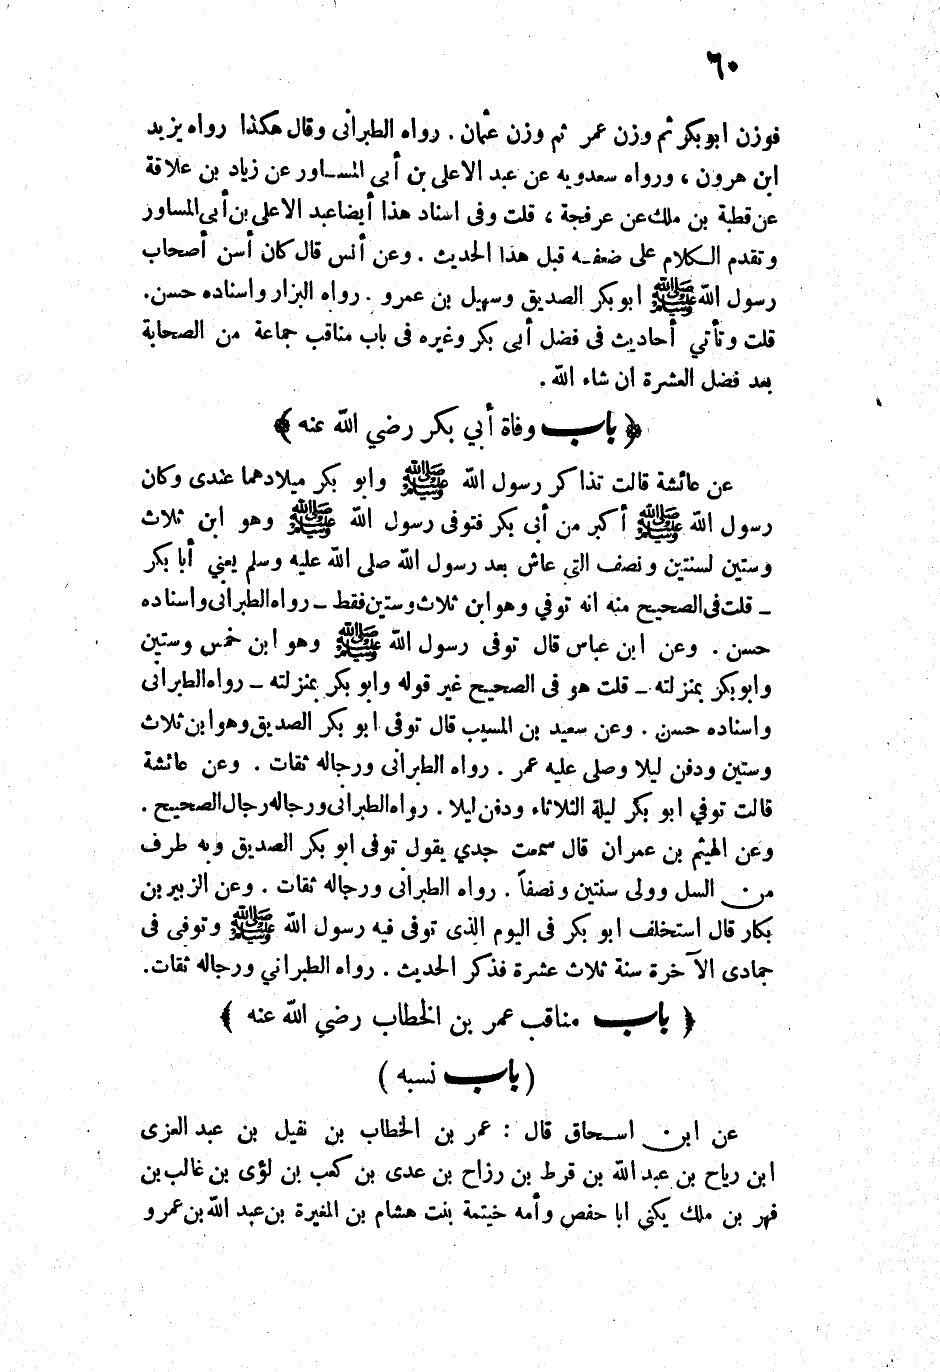 ٦٠
فوزن ابوبكر ثم وزن عمر ثم وزن عثمان . رواه الطبرانى وقال هكذا رواه يزيد
ابن هرون ، ورواه سعدويه عن عبد الاعلى بن أبي المساور عن زياد بن علاقة
عن قطبة بن ملك عن عرفجة ، قلت وفى اسناد هذا أيضا عبد الاعلى بن أبى المساور
وتقدم الكلام على ضعفه قبل هذا الحديث . وعن أنس قال كان أسن أصحاب
رسول الله ﷺ ابوبكر الصديق وسهيل بن عمرو . رواه البزار واسناده حسن.
قلت وتأتي أحاديث فى فضل أبى بكر وغيره فى باب مناقب جماعة من الصحابة
بعد فضل العشرة ان شاء الله .
﴿ باب وفاة أبي بكر رضي الله عنه ﴾
عن عائشة قالت تذاكر رسول الله ﷺ وابو بكر ميلادهما عندى وكان
رسول الله ﷺ أكبر من أبى بكر فتوفى رسول الله ﷺ وهو ابن ثلاث
وستين لسنتين ونصف التي عاش بعد رسول الله صلى الله عليه وسلم يعني أبا بكر
ـ قلت فى الصحيح منه انه توفي وهو ابن ثلاث وستين فقط ـ رواه الطبرانى واسناده
حسن . وعن ابن عباس قال توفى رسول الله ﷺ وهو ابن خمس وستين
وابوبكر بمنزلته ـ قلت هو فى الصحيح غير قوله وابو بكر بمنزلته ـ رواه الطبرانى
واسناده حسن . وعن سعيد بن المسيب قال توفى ابو بكر الصديق وهو ابن ثلاث
وستين ودفن ليلا وصلى عليه عمر . رواه الطبرانى ورجاله ثقات . وعن عائشة
قالت توفي ابو بكر ليلة الثلاثاء ودفن ليلا . رواه الطبرانى ورجاله رجال الصحيح .
وعن الهيثم بن عمران قال سمعت جدي يقول توفى ابو بكر الصديق وبه طرف
من السل وولى سنتين ونصفاً . رواه الطبرانى ورجاله ثقات . وعن الزبير بن
بكار قال استخلف ابو بكر فى اليوم الذى توفى فيه رسول الله ﷺ وتوفى فى
جمادى الآخرة سنة ثلاث عشرة فذكر الحديث . رواه الطبراني ورجاله ثقات.
﴿ باب مناقب عمر بن الخطاب رضي الله عنه ﴾
( باب نسبه )
عن ابن اسحاق قال : عمر بن الخطاب بن نفيل بن عبد العزى
ابن رياح بن عبد الله بن قرط بن رزاح بن عدى بن كعب بن لؤى بن غالب بن
فهر بن ملك يكني ابا حفص وأمه خيتمة بنت هشام بن المغيرة بن عبد الله بن عمرو